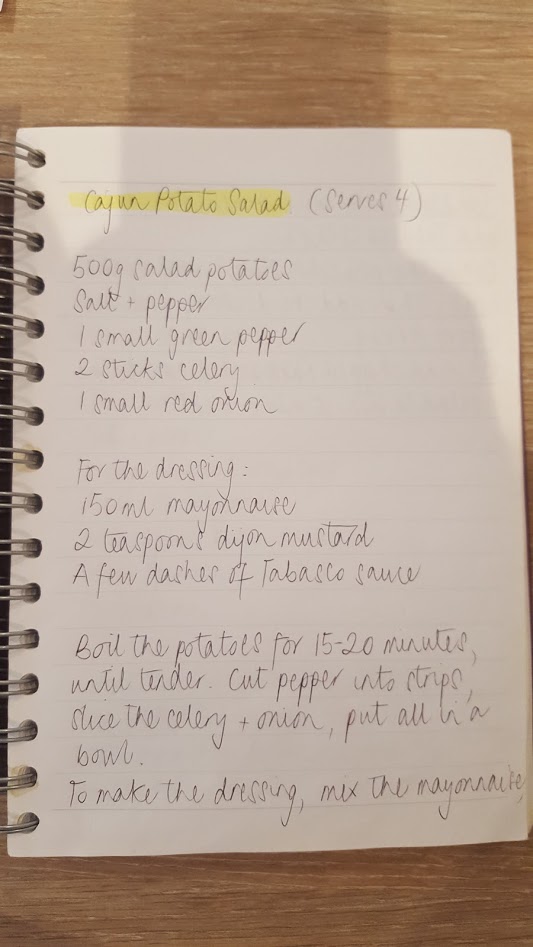 Cajun Potato Salad (Serves 4)
500g salad potatoes
Salt + pepper
1 small green pepper
2 sticks celery
1 small red onion
For the dressing:
150ml mayonnaise
2 teaspoons dijon mustard
A few dashes of Tabasco sauce
Boil the potatoes for 15-20 minutes,
until tender. Cut pepper into strips,
slice the celery + onion, put all in a
bowl.
To make the dressing, mix the mayonnaise,